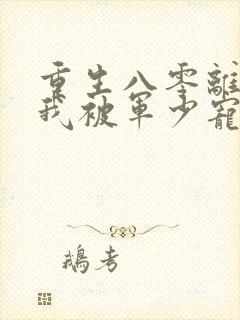 重生八零離
我被軍少寵
鵝考